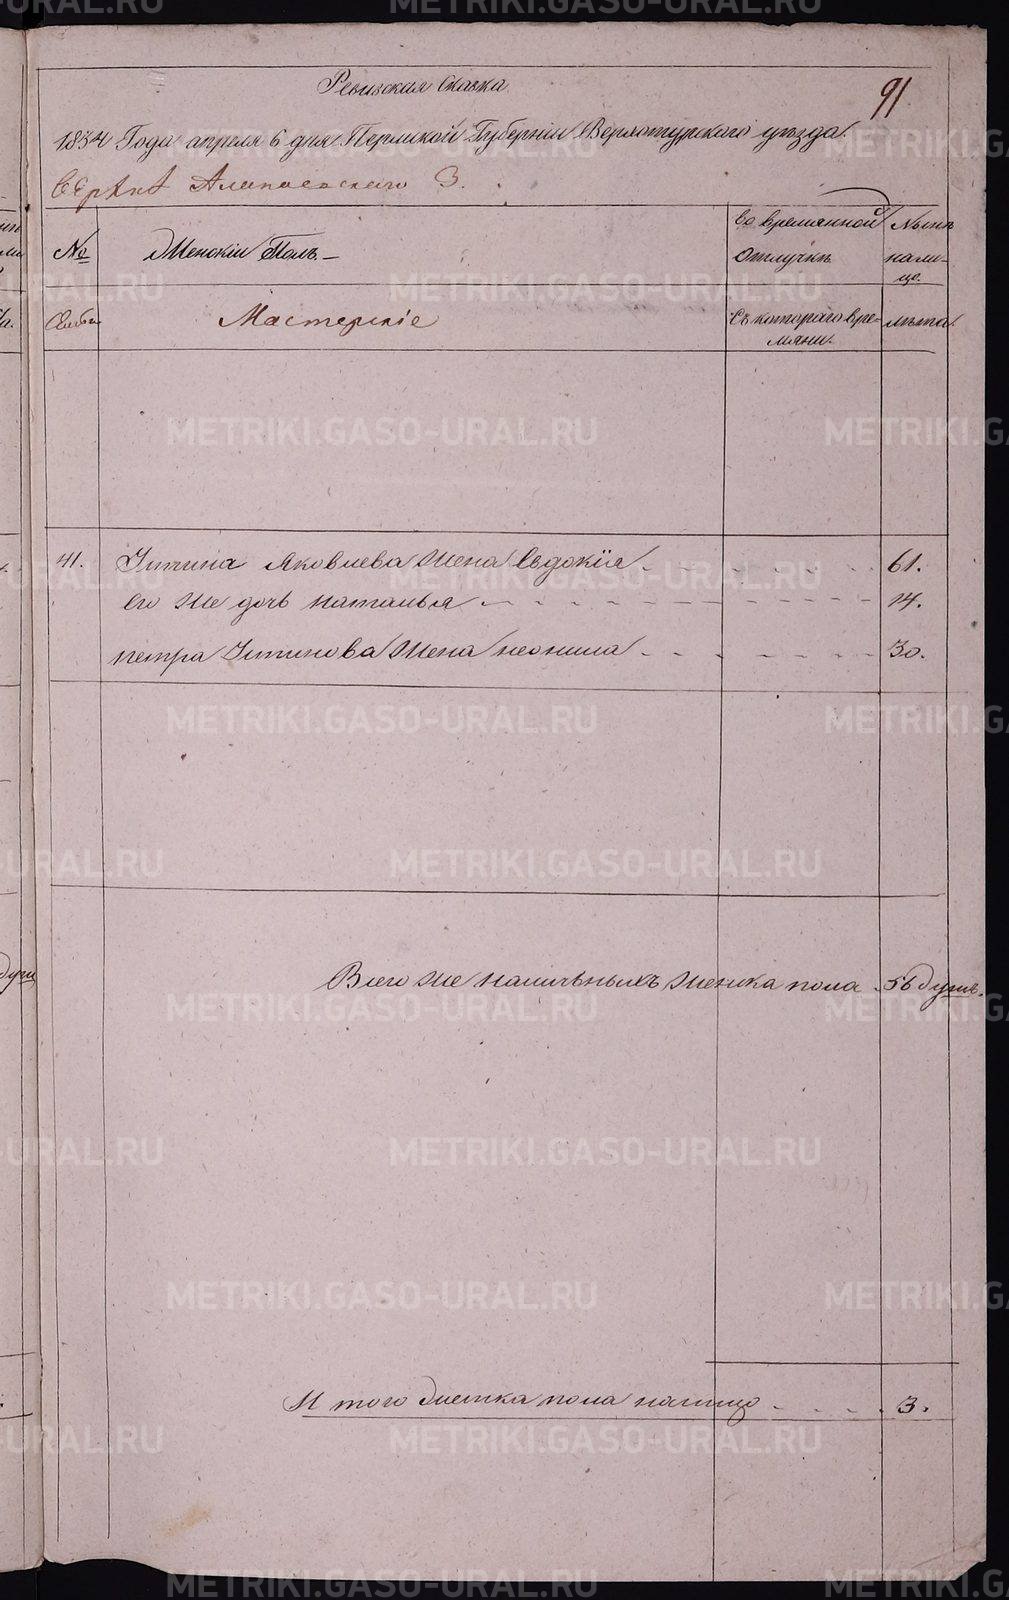 91
Ревизская Сказка
1834 Года апреля 6 дня Пермской Губернии Верхотурского уезда
Алапаевского З.
№
Женский Полъ
Во временной отлучке
Ныне налицо.
Семьи
Мастерские
Съ которого времяни.
лета.
41.
Яковлева Жена Евдокия
61.
его же дочь наталья
14.
петра жена неонила
30.
Всего же наличныхъ женска пола 56 душъ.
И того женска пола налицо
3.
METRIKI.GASO-URAL.RU